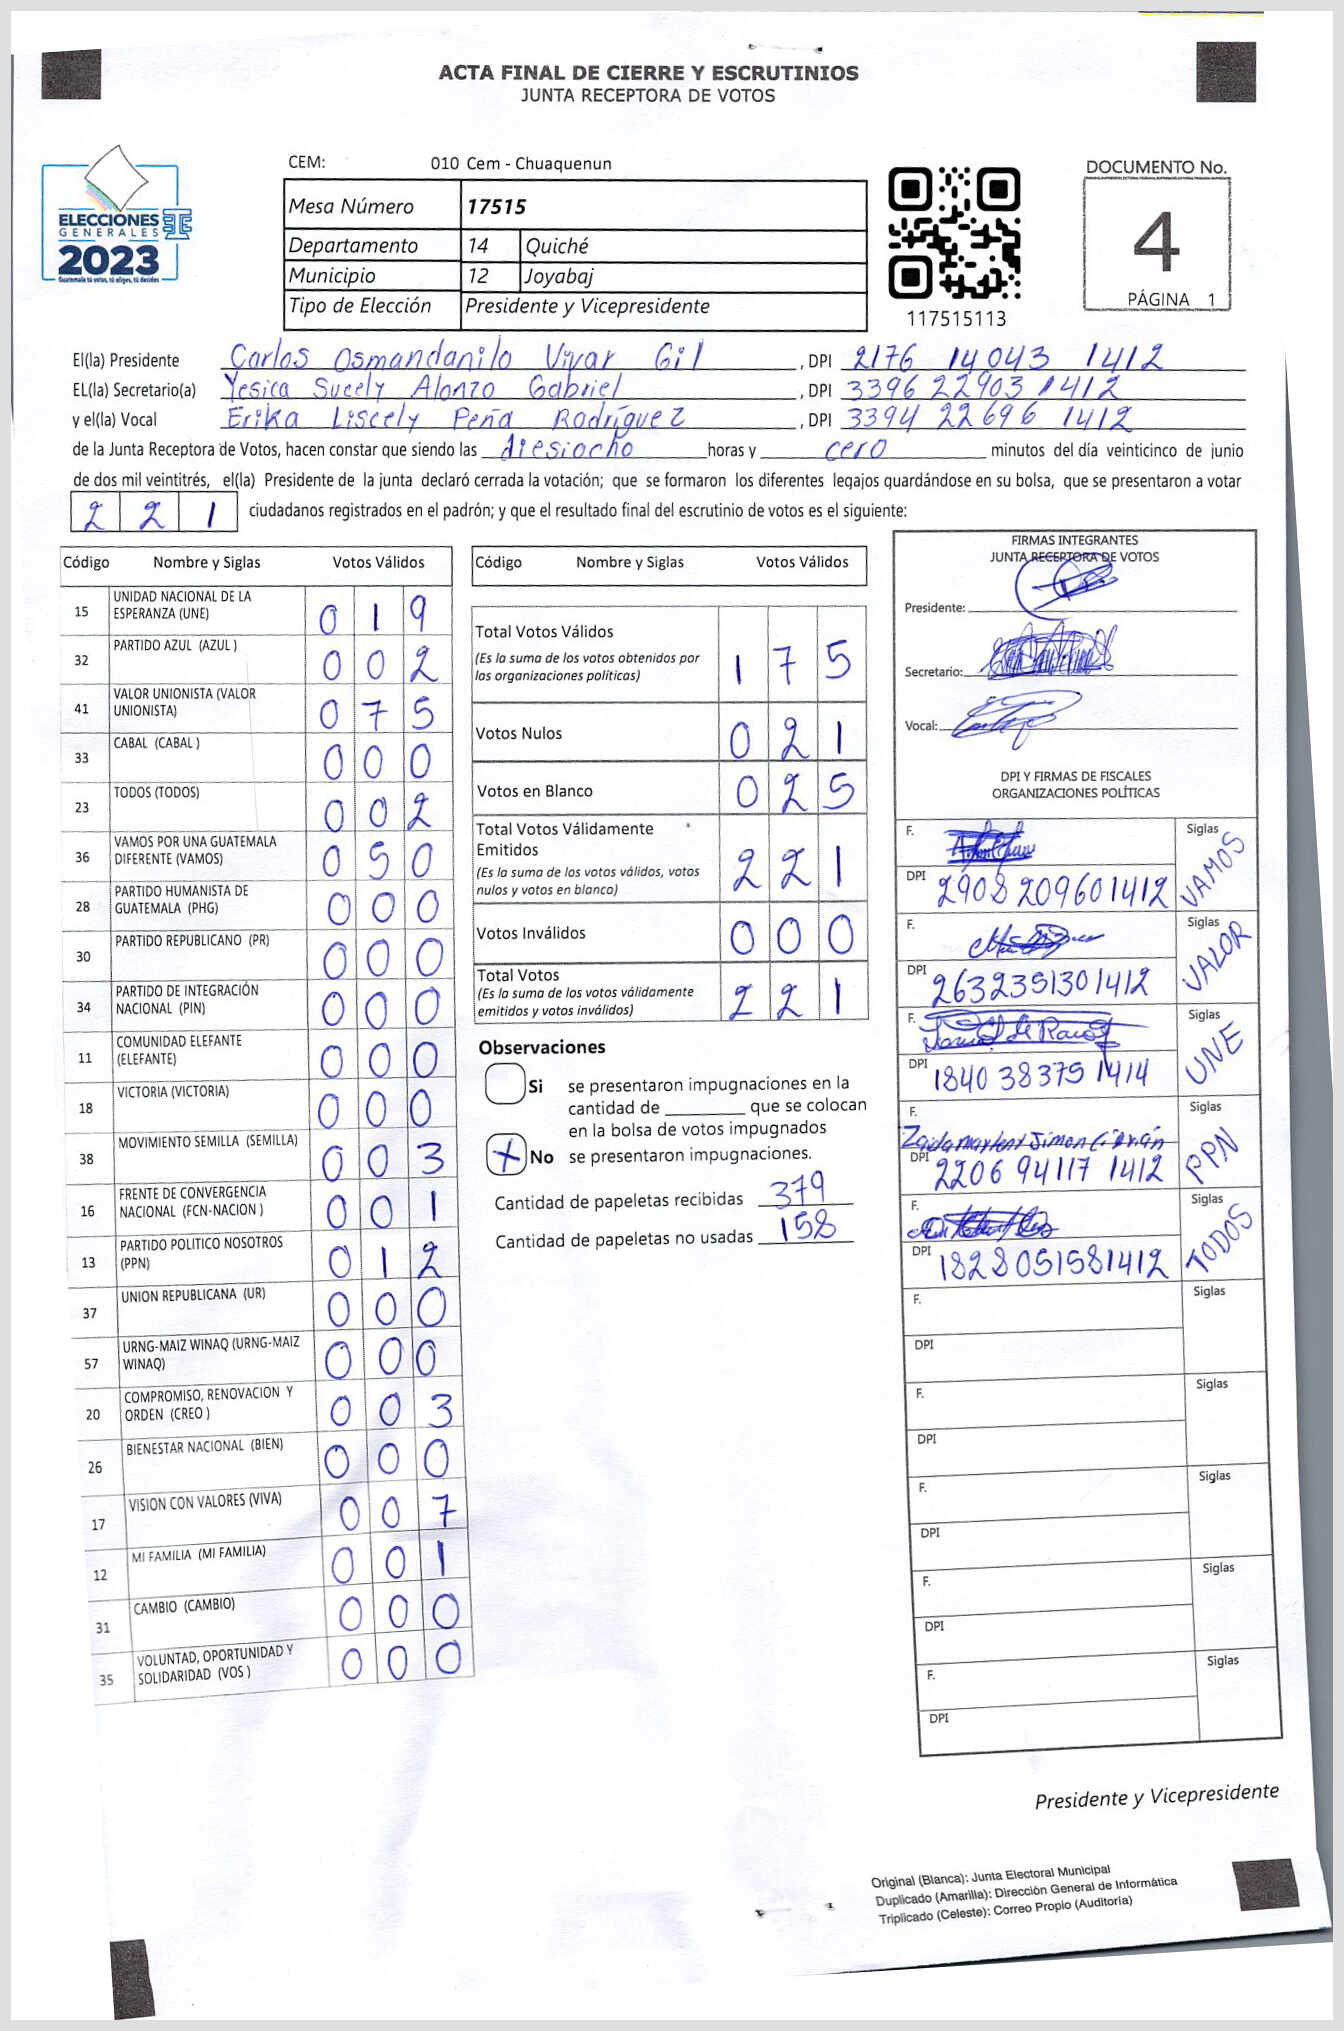 ACTA FINAL DE CIERRE Y ESCRUTINIOS
JUNTA RECEPTORA DE VOTOS
ELECCIONES
GENERALES
2023
Guatemala tú votas, tú eliges, tú decides
CEM: 010 Cem - Chuaquenun
Mesa Número 17515
Departamento 14 Quiché
Municipio 12 Joyabaj
Tipo de Elección Presidente y Vicepresidente
117515113
DOCUMENTO No.
4
PÁGINA 1
El(la) Presidente Carlos Osmandanilo Vivar Gil , DPI 2176 14043 1412
EL(la) Secretario(a) Yesica Sucely Alonzo Gabriel , DPI 3396 22903 1412
y el(la) Vocal Erika Liscely Peña Rodríguez , DPI 3394 22696 1412
de la Junta Receptora de Votos, hacen constar que siendo las diesiocho horas y cero minutos del día veinticinco de junio
de dos mil veintitrés, el(la) Presidente de la junta declaró cerrada la votación; que se formaron los diferentes legajos guardándose en su bolsa, que se presentaron a votar
2 2 1 ciudadanos registrados en el padrón; y que el resultado final del escrutinio de votos es el siguiente:
Código Nombre y Siglas Votos Válidos
15 UNIDAD NACIONAL DE LA ESPERANZA (UNE) 0 1 9
32 PARTIDO AZUL (AZUL ) 0 0 2
41 VALOR UNIONISTA (VALOR UNIONISTA) 0 7 5
33 CABAL (CABAL ) 0 0 0
23 TODOS (TODOS) 0 0 2
36 VAMOS POR UNA GUATEMALA DIFERENTE (VAMOS) 0 5 0
28 PARTIDO HUMANISTA DE GUATEMALA (PHG) 0 0 0
30 PARTIDO REPUBLICANO (PR) 0 0 0
34 PARTIDO DE INTEGRACIÓN NACIONAL (PIN) 0 0 0
11 COMUNIDAD ELEFANTE (ELEFANTE) 0 0 0
18 VICTORIA (VICTORIA) 0 0 0
38 MOVIMIENTO SEMILLA (SEMILLA) 0 0 3
16 FRENTE DE CONVERGENCIA NACIONAL (FCN-NACION ) 0 0 1
13 PARTIDO POLITICO NOSOTROS (PPN) 0 1 2
37 UNION REPUBLICANA (UR) 0 0 0
57 URNG-MAIZ WINAQ (URNG-MAIZ WINAQ) 0 0 0
20 COMPROMISO, RENOVACION Y ORDEN (CREO ) 0 0 3
26 BIENESTAR NACIONAL (BIEN) 0 0 0
17 VISION CON VALORES (VIVA) 0 0 7
12 MI FAMILIA (MI FAMILIA) 0 0 1
31 CAMBIO (CAMBIO) 0 0 0
35 VOLUNTAD, OPORTUNIDAD Y SOLIDARIDAD (VOS ) 0 0 0
Código Nombre y Siglas Votos Válidos
Total Votos Válidos 1 7 5
(Es la suma de los votos obtenidos por
las organizaciones políticas)
Votos Nulos 0 2 1
Votos en Blanco 0 2 5
Total Votos Válidamente
Emitidos 2 2 1
(Es la suma de los votos válidos, votos
nulos y votos en blanco)
Votos Inválidos 0 0 0
Total Votos 2 2 1
(Es la suma de los votos válidamente
emitidos y votos inválidos)
Observaciones
Si se presentaron impugnaciones en la
cantidad de ________ que se colocan
en la bolsa de votos impugnados
No se presentaron impugnaciones.
Cantidad de papeletas recibidas 379
Cantidad de papeletas no usadas 158
FIRMAS INTEGRANTES
JUNTA RECEPTORA DE VOTOS
Presidente:
Secretario:
Vocal:
DPI Y FIRMAS DE FISCALES
ORGANIZACIONES POLÍTICAS
F. Siglas VAMOS
DPI 2908 20960 1412
F. Siglas VALOR
DPI 2632351301412
F. Siglas UNE
DPI 1840 38375 1414
F. Siglas PPN
DPI 2206 94117 1412
F. Siglas TODOS
DPI 1828051581412
F. Siglas
DPI
F. Siglas
DPI
F. Siglas
DPI
F. Siglas
DPI
F. Siglas
DPI
Presidente y Vicepresidente
Original (Blanca): Junta Electoral Municipal
Duplicado (Amarilla): Dirección General de Informática
Triplicado (Celeste): Correo Propio (Auditoría)